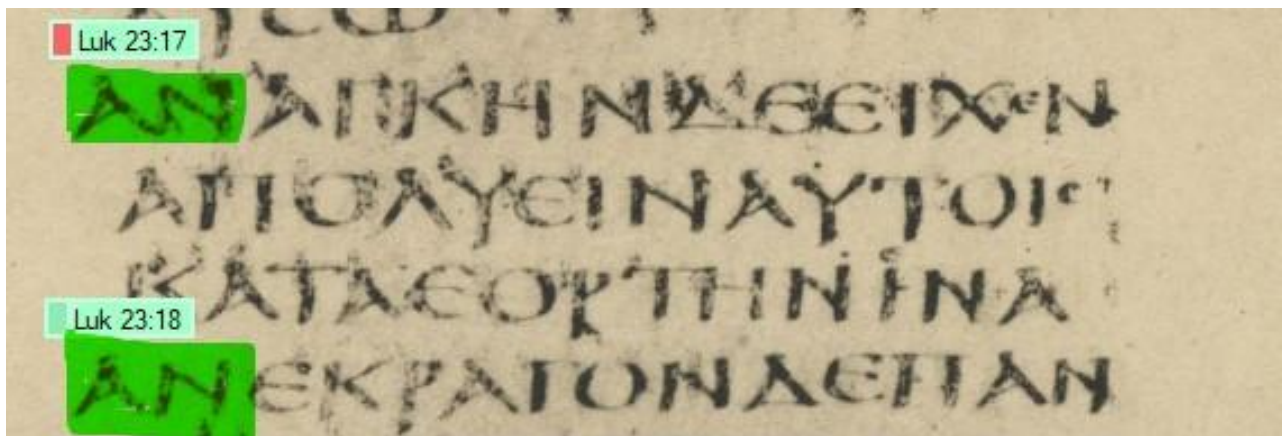 Luk 23:17
ΑΝΑΓΚΗΝΔΕΕΙΧΕΝ
ΑΠΟΛΥΕΙΝΑΥΤΟΙϹ
ΚΑΤΑΕΟΡΤΗΝΪΝΑ
Luk 23:18
ΑΝΕΚΡΑΓΟΝΔΕΠΑΝ